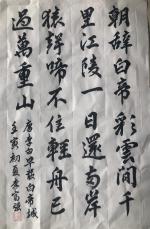 朝辞白帝彩雲間千
里江陵一日還両岸
猿聲啼不住輕舟已
過萬重山
唐李白早發白帝城
壬寅初夏李富強